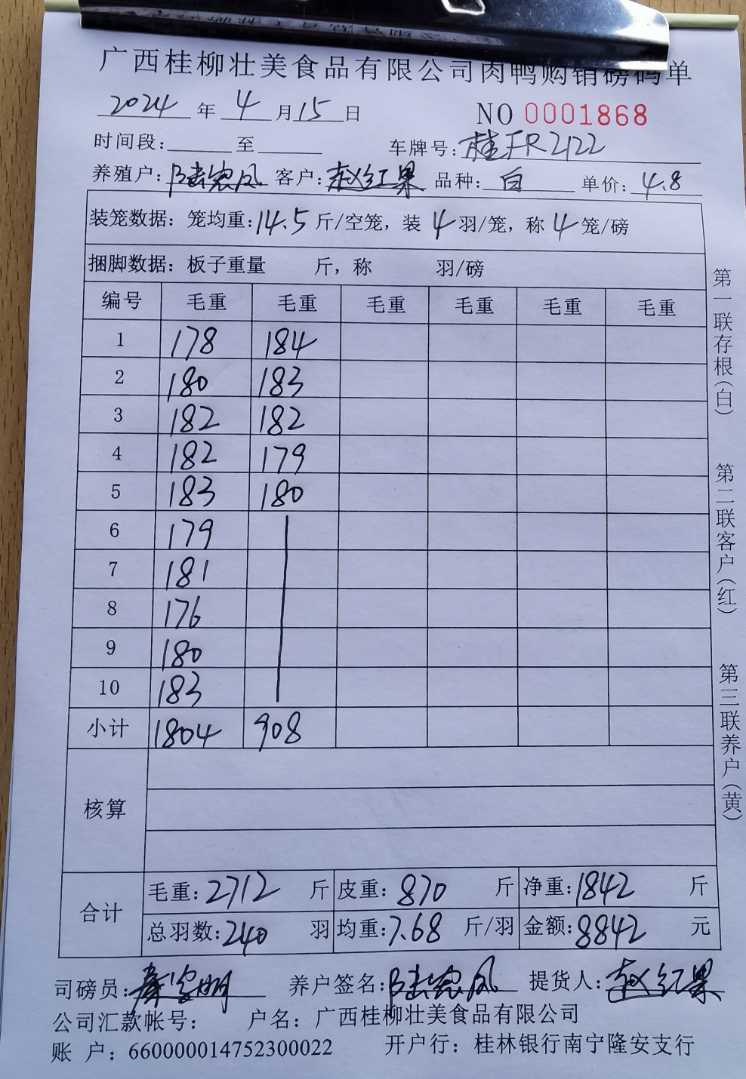 广西桂柳壮美食品有限公司肉鸭购销磅码单
2024 年 4 月 15 日 NO 0001868
时间段: 至 车牌号: 桂FR2122
养殖户: 陆 凤 客户: 赵红果 品种: 白 单价: 4.8
装笼数据: 笼均重: 14.5 斤/空笼, 装 4 羽/笼, 称 4 笼/磅
捆脚数据: 板子重量 斤, 称 羽/磅
编号 毛重 毛重 毛重 毛重 毛重 毛重
1 178 184
2 180 183
3 182 182
4 182 179
5 183 180
6 179
7 181
8 176
9 180
10 183
小计 1804 908
核算
合计
毛重: 2712 斤 皮重: 870 斤 净重: 1842 斤
总羽数: 240 羽 均重: 7.68 斤/羽 金额: 8842 元
司磅员: 养户签名: 陆 凤 提货人: 赵红果
公司汇款帐号: 户名: 广西桂柳壮美食品有限公司
账 户: 660000014752300022 开户行: 桂林银行南宁隆安支行
第一联存根(白)
第二联客户(红)
第三联养户(黄)